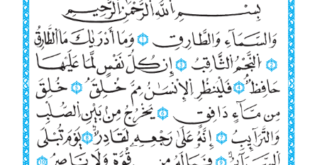 بِسْمِ اللَّهِ الرَّحْمَٰنِ الرَّحِيمِ
وَالسَّمَاءِ وَالطَّارِقِ ۝ وَمَا أَدْرَىٰكَ مَا الطَّارِقُ
۝ النَّجْمُ الثَّاقِبُ ۝ إِن كُلُّ نَفْسٍ لَّمَّا عَلَيْهَا
حَافِظٌ ۝ فَلْيَنظُرِ الْإِنسَٰنُ مِمَّ خُلِقَ ۝ خُلِقَ
مِن مَّاءٍ دَافِقٍ ۝ يَخْرُجُ مِن بَيْنِ الصُّلْبِ
وَالتَّرَائِبِ ۝ إِنَّهُ عَلَىٰ رَجْعِهِ لَقَادِرٌ ۝ يَوْمَ تُبْلَى
السَّرَائِرُ ۝ فَمَا لَهُ مِن قُوَّةٍ وَلَا نَاصِرٍ